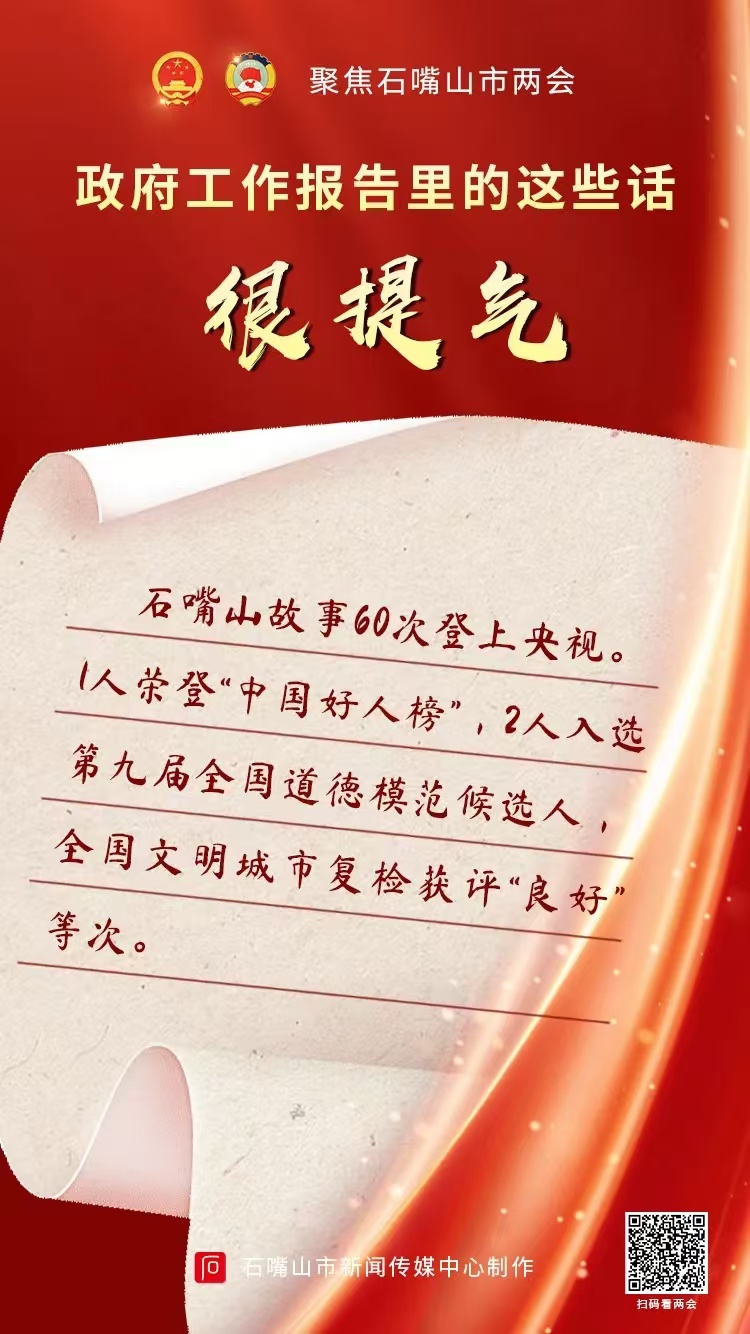 聚焦石嘴山市两会
政府工作报告里的这些话
很提气
石嘴山故事60次登上央视。
1人荣登“中国好人榜”，2人入选
第九届全国道德模范候选人，
全国文明城市复检获评“良好”
等次。
石嘴山市新闻传媒中心制作
扫码看两会